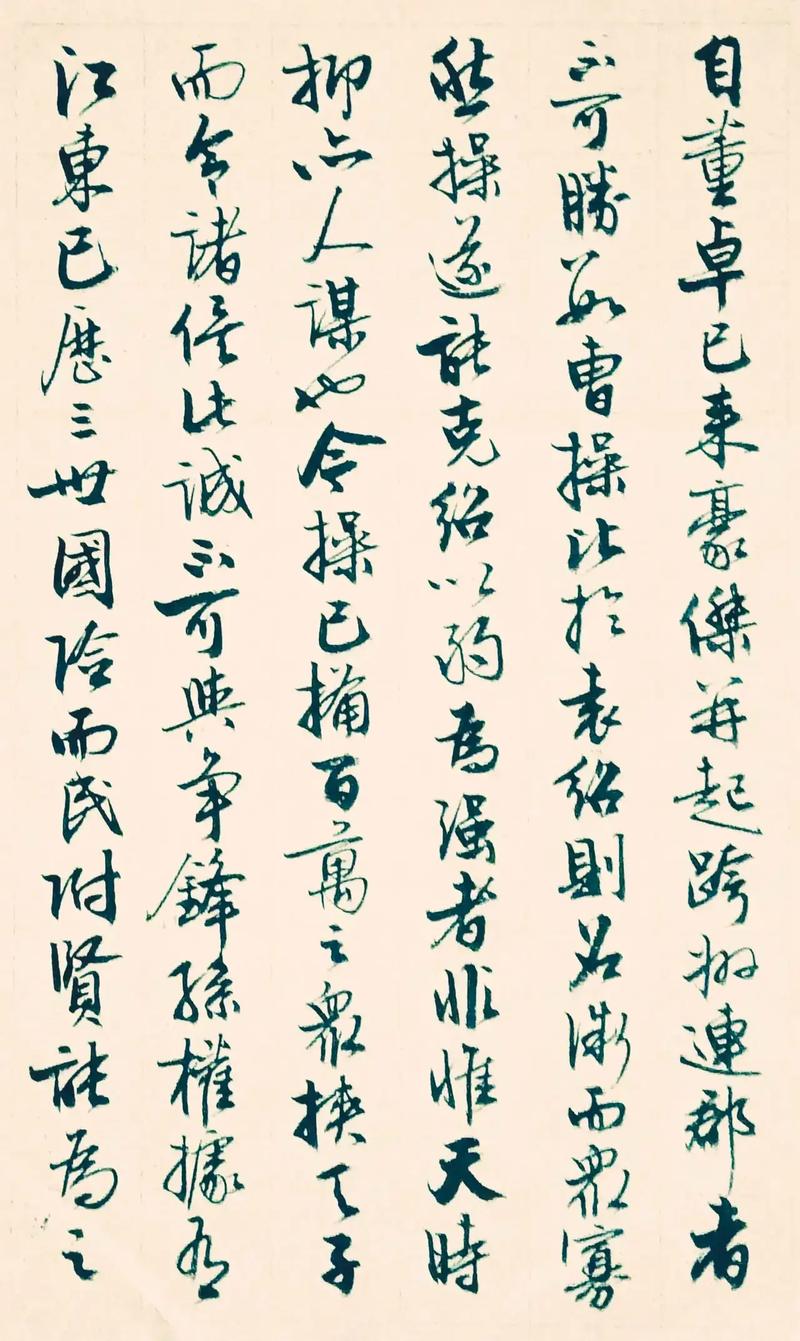 自董卓已来豪傑并起跨州連郡者
不可勝數曹操比於袁紹則名微而眾寡
然操遂能克紹以弱為强者非惟天時
抑亦人謀也今操已擁百萬之眾挾天子
而令諸侯此誠不可與争鋒孫權據有
江東已歷三世國險而民附賢能為之